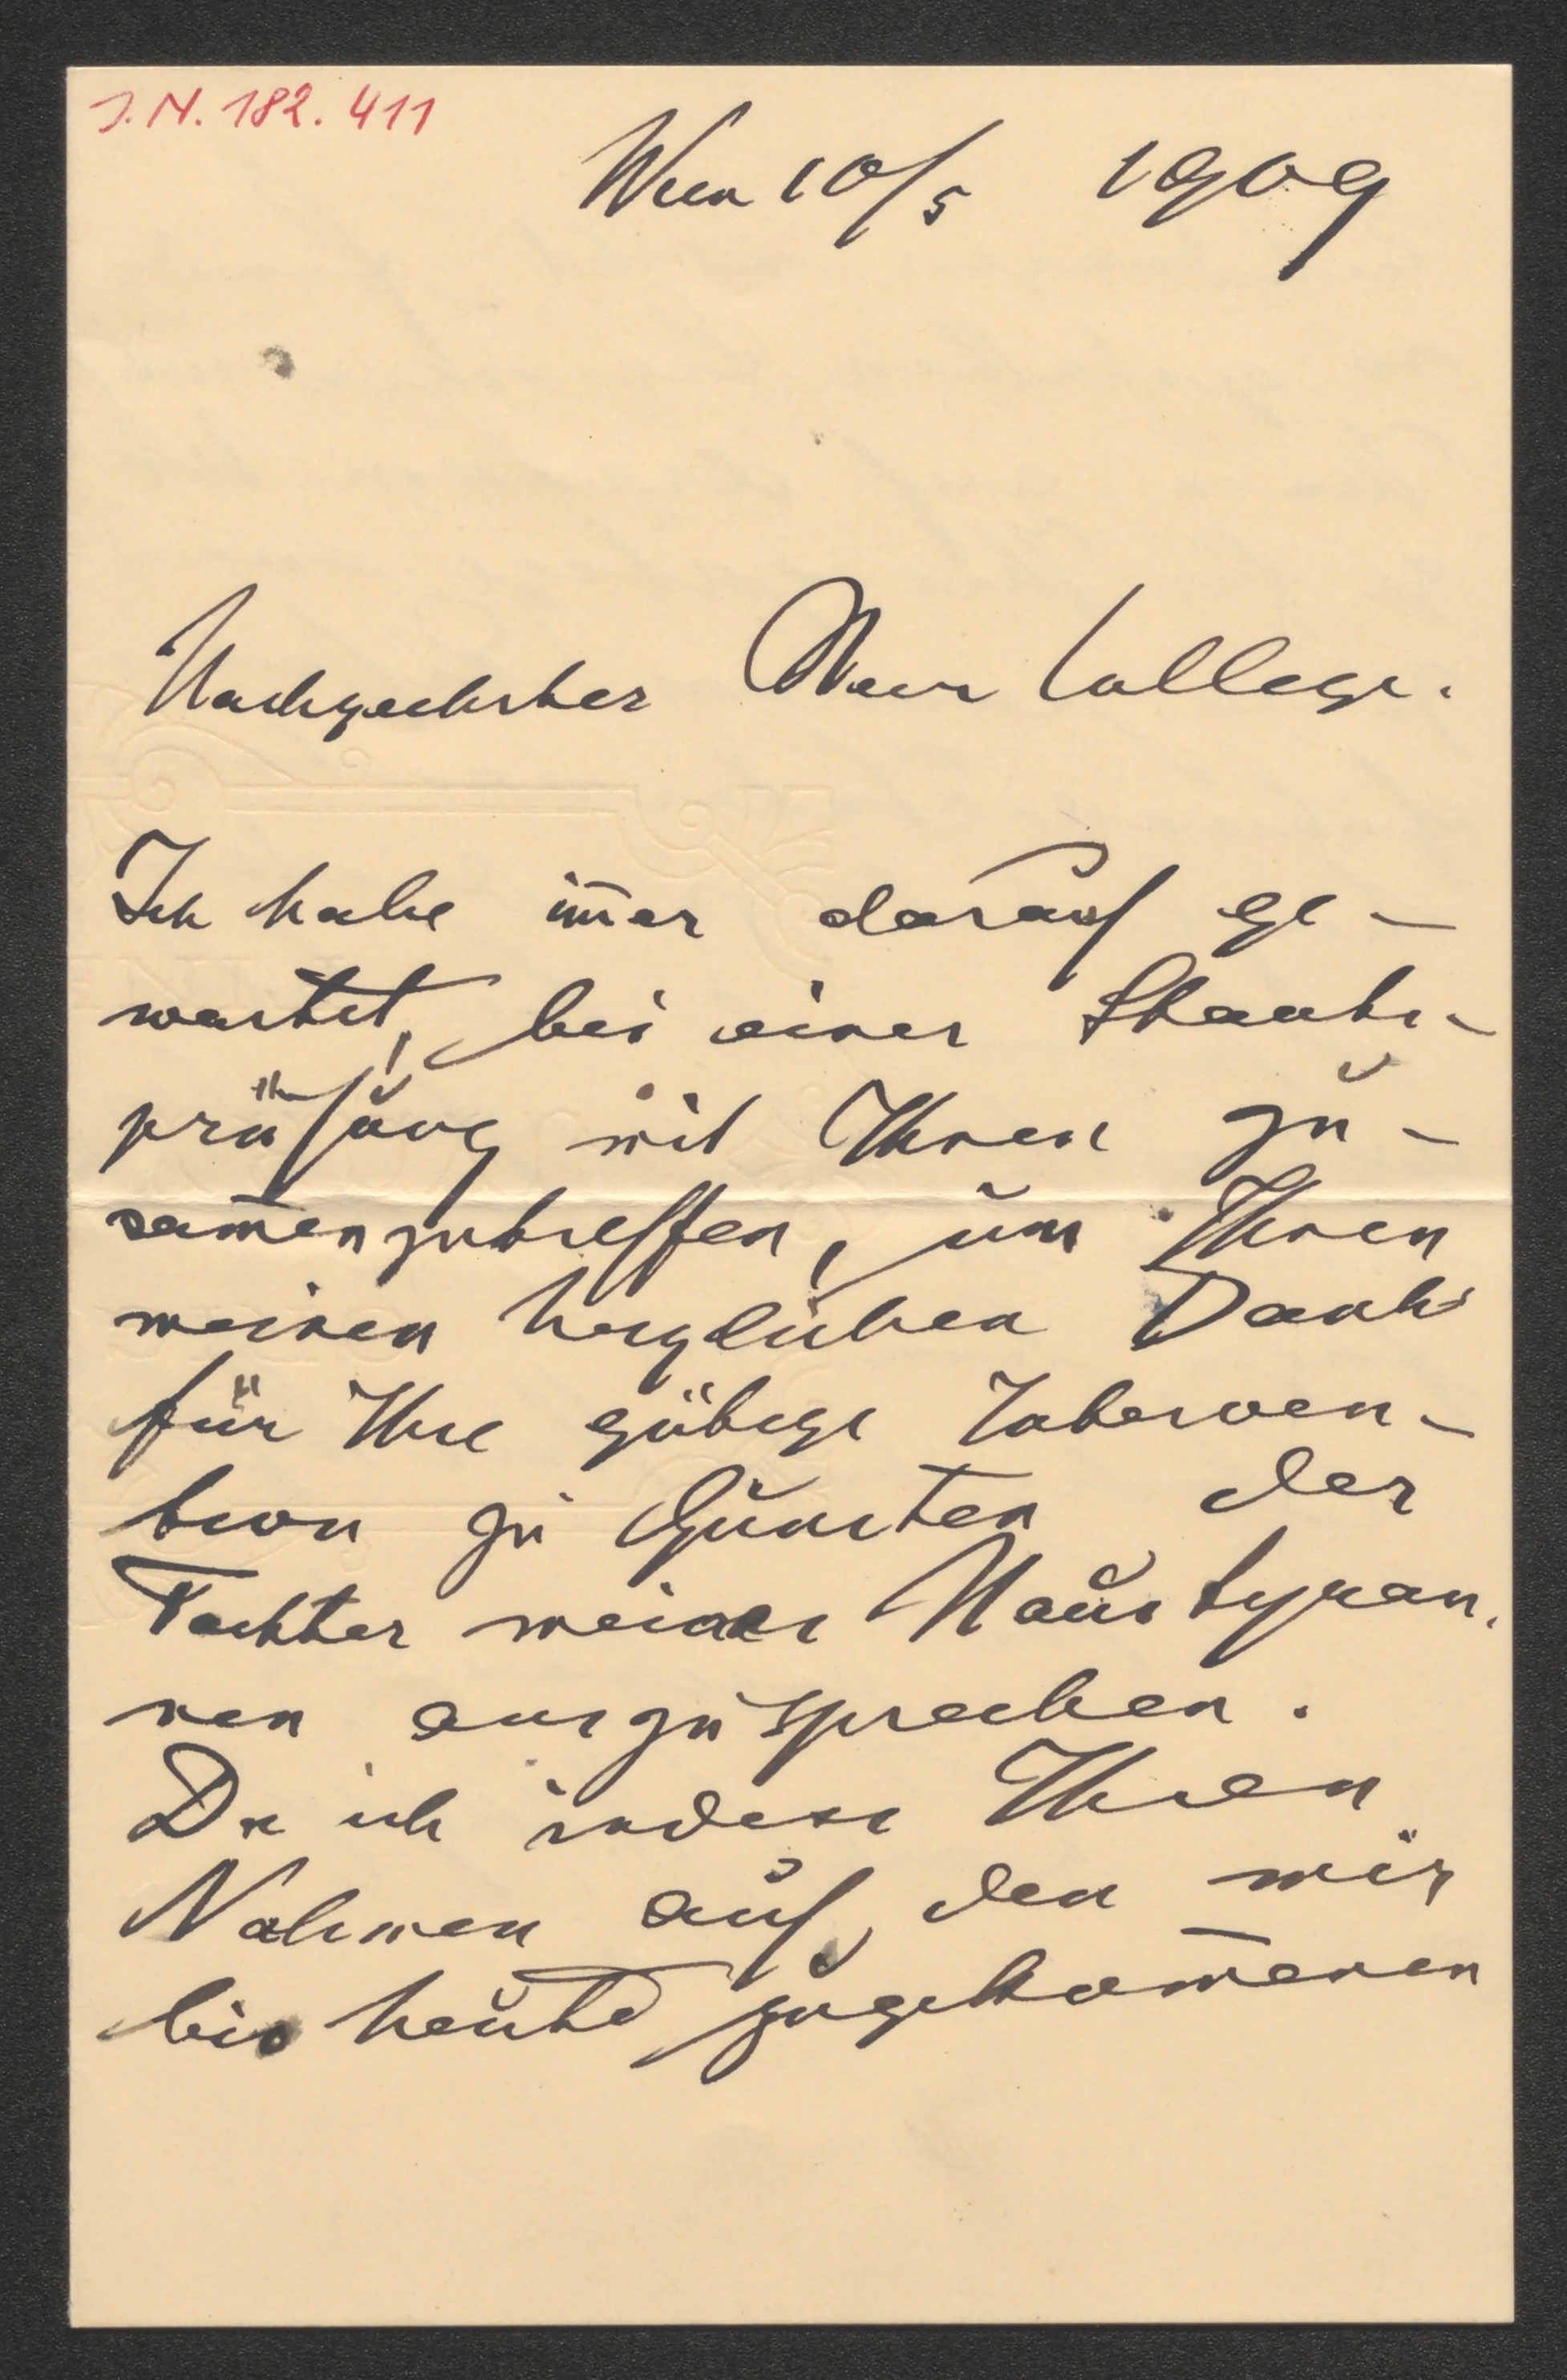 J.N. 182.411
Wien 10/5 1909
Hochgeehrter Herr College.
Ich habe im̄er darauf ge-
wartet, bei einer Staats-
prüfung mit Ihnen zu-
sam̄enzutreffen, um Ihnen
meinen herzlichen Dank
für Ihre gütige Interven-
tion zu Gunsten der
Tochter meines Haustyran-
nen auszusprechen.
Da ich indess Ihren
Nahmen auf, den mir
bis heute zugekom̄enen